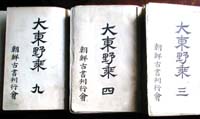 大東野乗 九
朝鮮古書刊行會
大東野乗 四
朝鮮古書刊行會
大東野乗 三
朝鮮古書刊行會